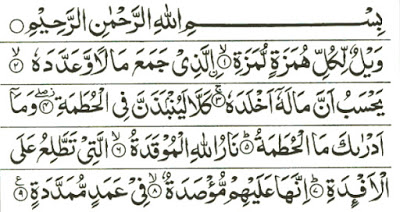 بِسْمِ اللهِ الرَّحْمٰنِ الرَّحِيْمِ
وَيْلٌ لِّكُلِّ هُمَزَةٍ لُّمَزَةٍ ۙ﴿۱﴾ اۨلَّذِىْ جَمَعَ مَالًا وَّعَدَّدَهٗ ۙ﴿۲﴾
يَحْسَبُ اَنَّ مَالَهٗۤ اَخْلَدَهٗ ۚ﴿۳﴾ كَلَّا لَيُنْۢبَذَنَّ فِى الْحُطَمَةِ ۖ﴿۴﴾ وَمَاۤ
اَدْرٰىكَ مَا الْحُطَمَةُ ؕ﴿۵﴾ نَارُ اللهِ الْمُوْقَدَةُ ۙ﴿۶﴾ الَّتِىْ تَطَّلِعُ عَلَى
الْاَفْـِٕدَةِ ؕ﴿۷﴾ اِنَّهَا عَلَيْهِمْ مُّؤْصَدَةٌ ۙ﴿۸﴾ فِىْ عَمَدٍ مُّمَدَّدَةٍ ﴿۹﴾ ع